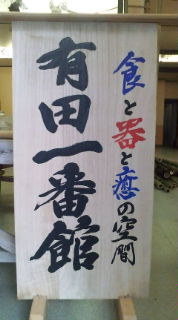 食と器と癒の空間
有田一番館